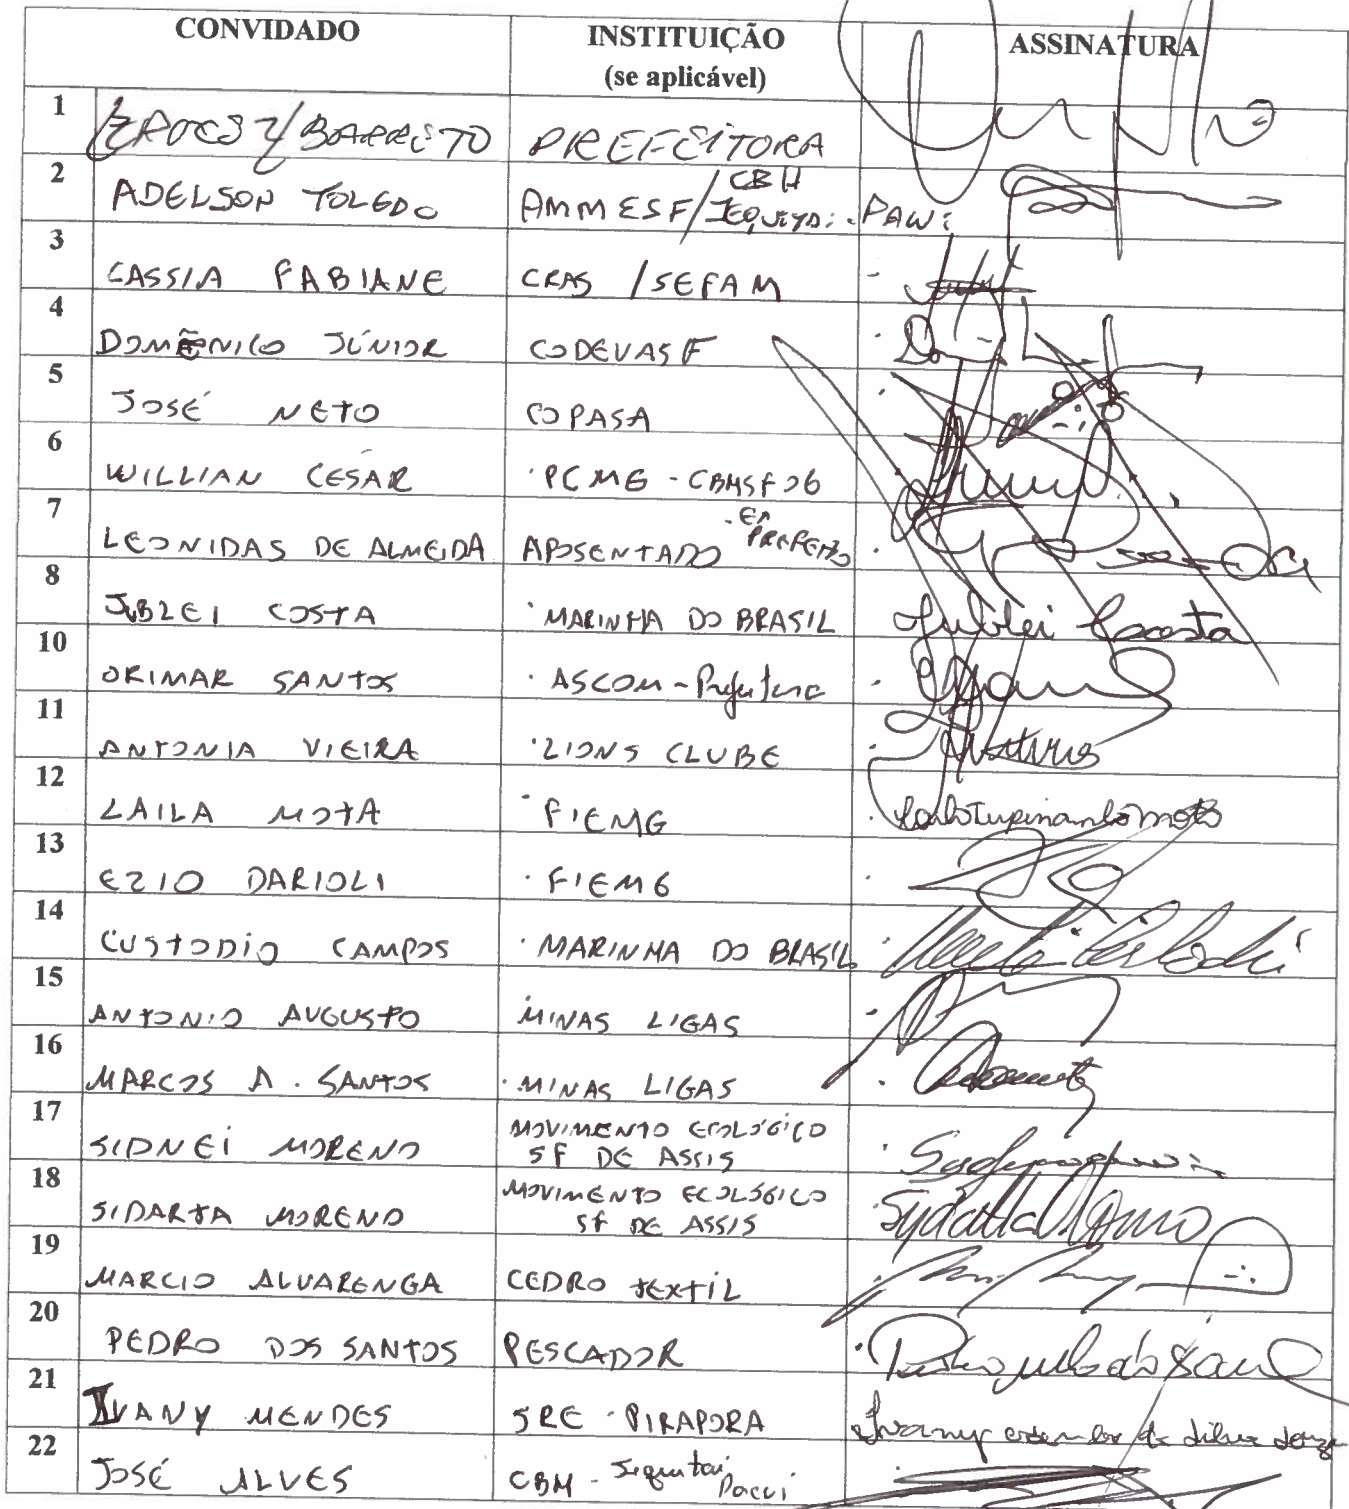 CONVIDADO INSTITUIÇÃO (se aplicável) ASSINATURA
1 BARRETO PREFEITURA
2 ADELSON TOLEDO AMMESF/CBH Jequitaí-PACUí
3 CASSIA FABIANE CRAS / SEFAM
4 DOMÊNICO JÚNIOR CODEVASF
5 JOSÉ NETO COPASA
6 WILLIAN CESAR PCMG - CBHSF06
7 LEONIDAS DE ALMEIDA APOSENTADO - EX PREFEITO
8 JUBLEI COSTA MARINHA DO BRASIL Jublei Costa
10 ORIMAR SANTOS ASCOM - Prefeitura
11 ANTONIA VIEIRA LIONS CLUBE
12 LAILA MOTA FIEMG
13 EZIO DARIOLI FIEMG
14 CUSTODIO CAMPOS MARINHA DO BRASIL
15 ANTONIO AUGUSTO MINAS LIGAS
16 MARCOS A. SANTOS MINAS LIGAS
17 SIDNEI MORENO MOVIMENTO ECOLÓGICO SF DE ASSIS
18 SIDARTA MORENO MOVIMENTO ECOLÓGICO SF DE ASSIS
19 MARCIO ALVARENGA CEDRO TEXTIL
20 PEDRO DOS SANTOS PESCADOR
21 IVANY MENDES SRE - PIRAPORA
22 JOSÉ ALVES CBM - Jequitaí Pacuí